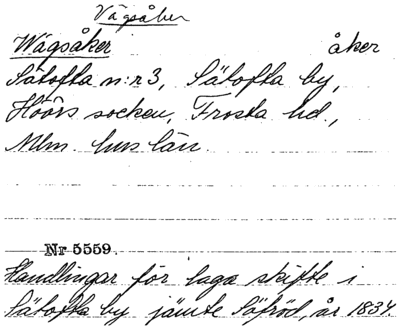 Vägsåker
Wägsåker åker
Sätofta n:r 3, Sätofta by,
Höörs socken, Frosta hd.,
Mlm. hus län.
Nr 5559.
Handlingar för laga skifte i
Sätofta by jämte Säfröd, år 1834.